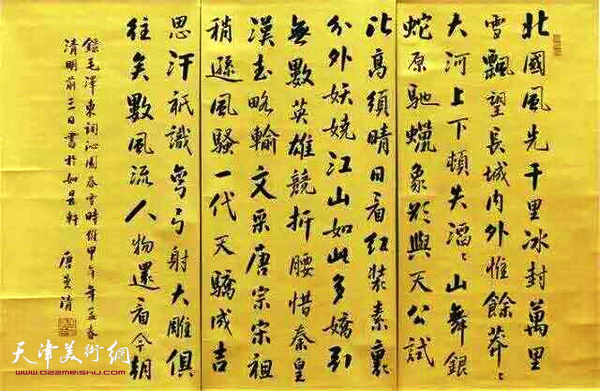 北國風光千里冰封萬里
雪飄望長城內外惟餘莽〻
大河上下頓失滔〻山舞銀
蛇原馳蠟象欲與天公試
比高須晴日看紅裝素裹
分外妖嬈江山如此多嬌引
無數英雄競折腰惜秦皇
漢武略輸文采唐宗宋祖
稍遜風騷一代天驕成吉
思汗祇識彎弓射大雕俱
往矣數風流人物還看今朝
錄毛澤東詞沁園春雪時維甲午年孟春
清明前三日書於如是軒 唐 清
天津美術網
www.022meishu.com